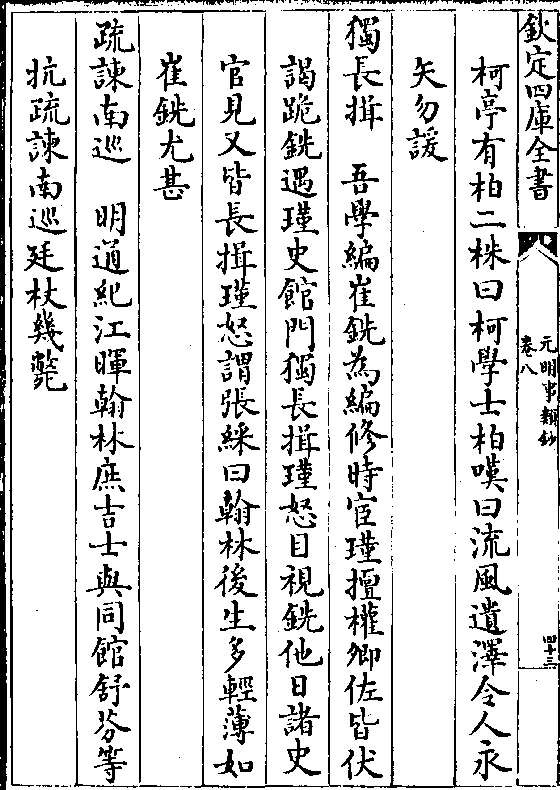 欽定四庫全書
元明事類鈔
卷八
四十三
柯亭有柏二株曰柯學士柏嘆曰流風遺澤令人永
矢勿諼
獨長揖　吾學編崔銑為編修時宦瑾擅權卿佐皆伏
謁跪銑遇瑾史館門獨長揖瑾怒目視銑他日諸史
官見又皆長揖瑾怒謂張綵曰翰林後生多輕薄如
崔銑尤甚
疏諫南巡　明通紀江暉翰林庶吉士與同館舒芬等
抗疏諫南巡廷杖幾斃